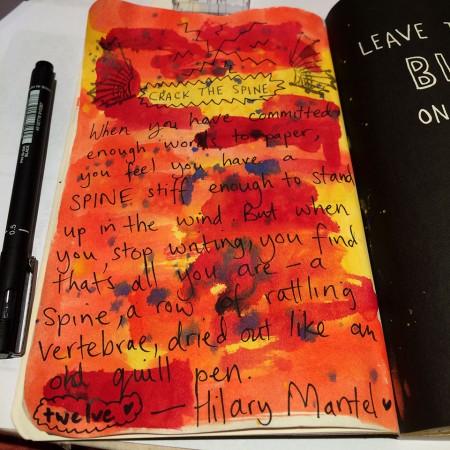 CRACK THE SPINE
When you have committed
enough words to paper,
you feel you have a
SPINE stiff enough to stand
up in the wind. But when
you stop writing, you find
that's all you are — a
Spine, a row of rattling
vertebrae, dried out like an
old quill pen.
twelve ♥ — Hilary Mantel ♥
LEAVE T
BL
ON
0.5